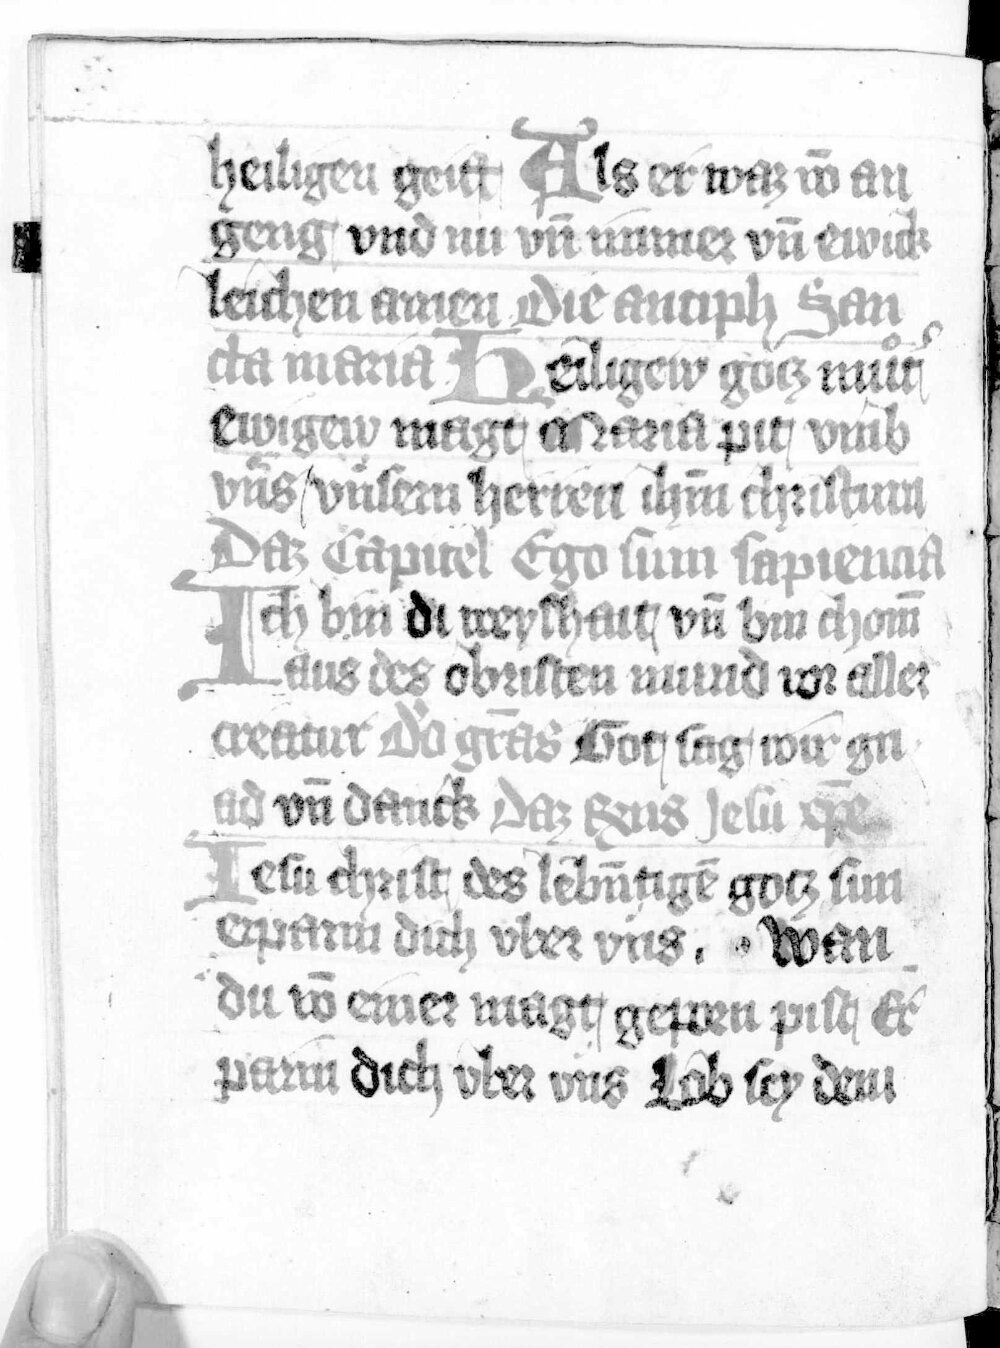 heiligen geist Als er waz vō an
geng vnd nu vn̄ nimer vn̄ ewick
leichen amen Die antiph San
cta maria Heiligew gotz můt͛
ewigew magt Maria pit vmb
vns vnsern herren ihm̄ christum
Daz Capitel Ego sum sapiencia
Ich bin di weyshait vn̄ bin chom̄
aus des obristen mund vor aller
creatur Dō gr̄as Got sag wir gn
ad vn̄ danck Daz Jesu xp̄e
Jesu christ des lēbn̄tigē gotz sun
erparm dich vber vns. Wan
du vō einer magt geporn pist Er
parm dich vber vns Lob sey dem